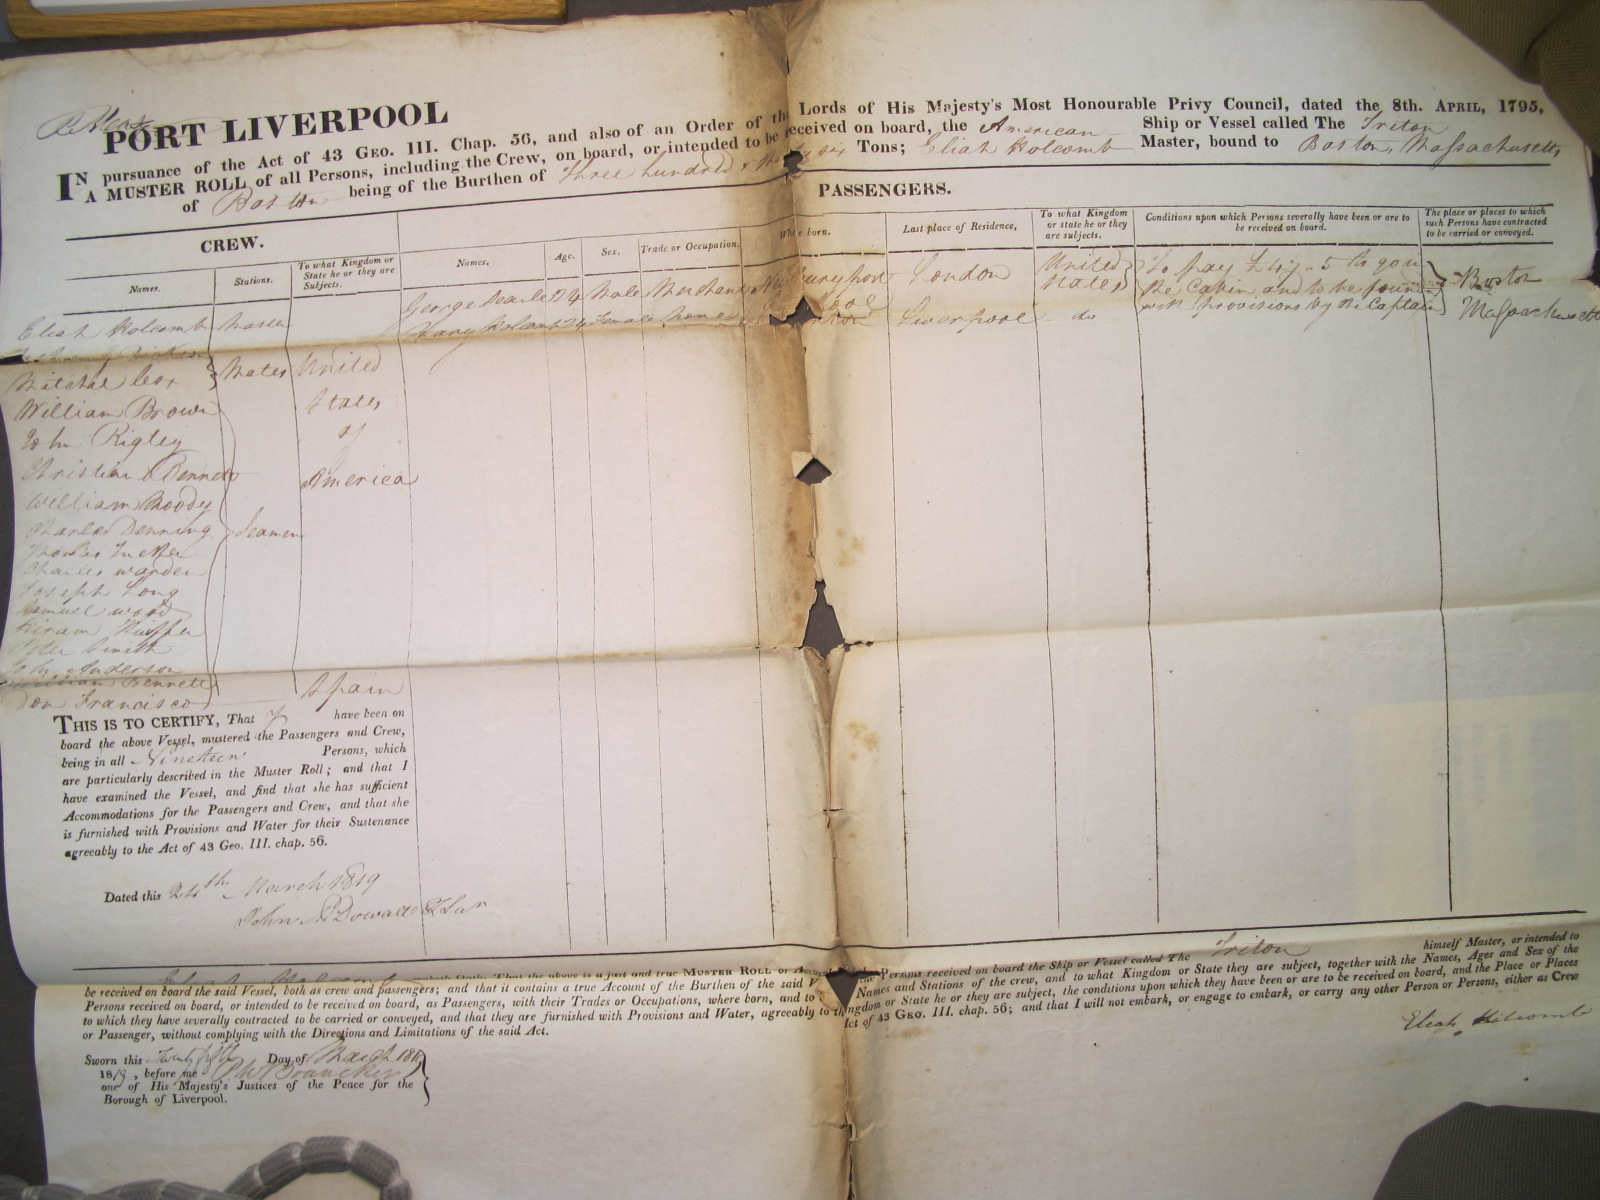 PORT LIVERPOOL
IN pursuance of the Act of 43 GEO. III. Chap. 56, and also of an Order of the Lords of His Majesty's Most Honourable Privy Council, dated the 8th. APRIL, 1795,
A MUSTER ROLL of all Persons, including the Crew, on board, or intended to be received on board, the American Ship or Vessel called The Triton
of Boston being of the Burthen of Three hundred & six Tons; Eliah Holcomb Master, bound to Boston, Massachusetts
PASSENGERS.
CREW.
Names. Stations. To what Kingdom or State he or they are Subjects. Names. Age. Sex. Trade or Occupation. Where born. Last place of Residence, To what Kingdom or state he or they are subjects. Conditions upon which Persons severally have been or are to be received on board. The place or places to which such Persons have contracted to be carried or conveyed.
George Male Merchant London United States To pay £47..5 to go in the Cabin and to be found with provisions by the Captain Boston Massachusetts
Mary Female none Liverpool do
Eliah Holcomb Master
Mates United
William Brown States
John Rigley of
Christian Bennett America
William Moody
Charles Denning Seamen
Charles warden
Joseph Long
Samuel wood
Hiram
Peter Smith
John Anderson
William Bennett
Don Francisco Spain
THIS IS TO CERTIFY, That I have been on
board the above Vessel, mustered the Passengers and Crew,
being in all Nineteen Persons, which
are particularly described in the Muster Roll; and that I
have examined the Vessel, and find that she has sufficient
Accommodations for the Passengers and Crew, and that she
is furnished with Provisions and Water for their Sustenance
agreeably to the Act of 43 Geo. III. chap. 56.
Dated this 24th March 1819
John McDowall
maketh Oath, That the above is a just and true MUSTER ROLL or Account of the Persons received on board the Ship or Vessel called The Triton himself Master, or intended to
be received on board the said Vessel, both as crew and passengers; and that it contains a true Account of the Burthen of the said Names and Stations of the crew, and to what Kingdom or State they are subject, together with the Names, Ages and Sex of the
Persons received on board, or intended to be received on board, as Passengers, with their Trades or Occupations, where born, and to Kingdom or State he or they are subject, the conditions upon which they have been or are to be received on board, and the Place or Places
to which they have severally contracted to be carried or conveyed, and that they are furnished with Provisions and Water, agreeably to the Act of 43 GEO. III. chap. 56; and that I will not embark, or engage to embark, or carry any other Person or Persons, either as Crew
or Passenger, without complying with the Directions and Limitations of the said Act.
Eliah Holcomb
Sworn this Twenty fifth Day of March
1819, before me
one of His Majesty's Justices of the Peace for the
Borough of Liverpool.